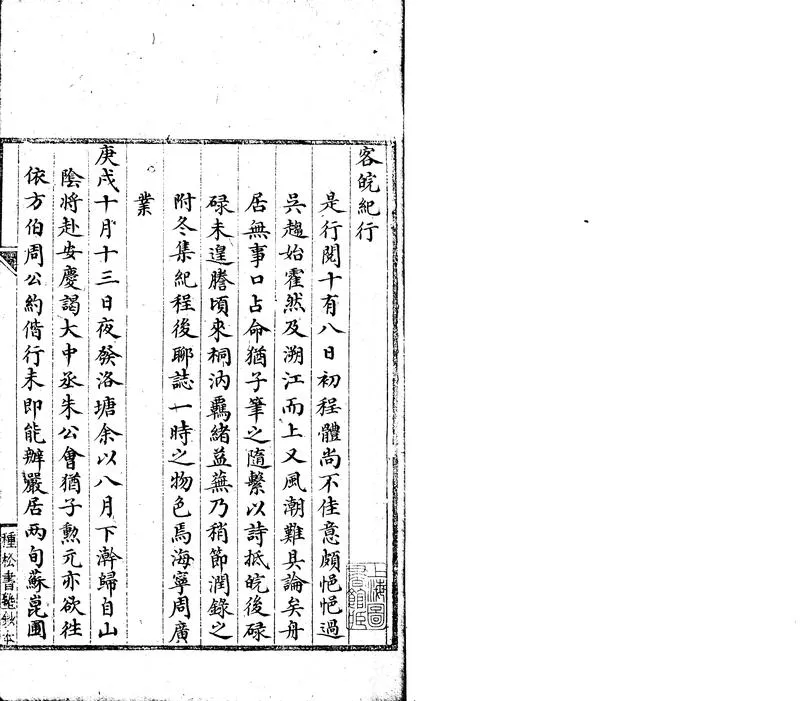 客皖紀行
是行閱十有八日初程體尚不佳意頗悒悒過
吳趨始霍然及溯江而上又風潮難具論矣舟
居無事口占命猶子筆之隨繫以詩抵皖後碌
碌未遑謄頃來桐汭覊緒益蕪乃稍節潤錄之
附冬集紀程後聊誌一時之物色焉海寧周廣
業
庚戌十月十三日夜發洛塘余以八月下澣歸自山
陰將赴安慶謁大中丞朱公會猶子勲元亦欲往
依方伯周公約偕行未即能辦嚴居两旬蘇崑圃
種松書塾鈔本
上海圖書館藏